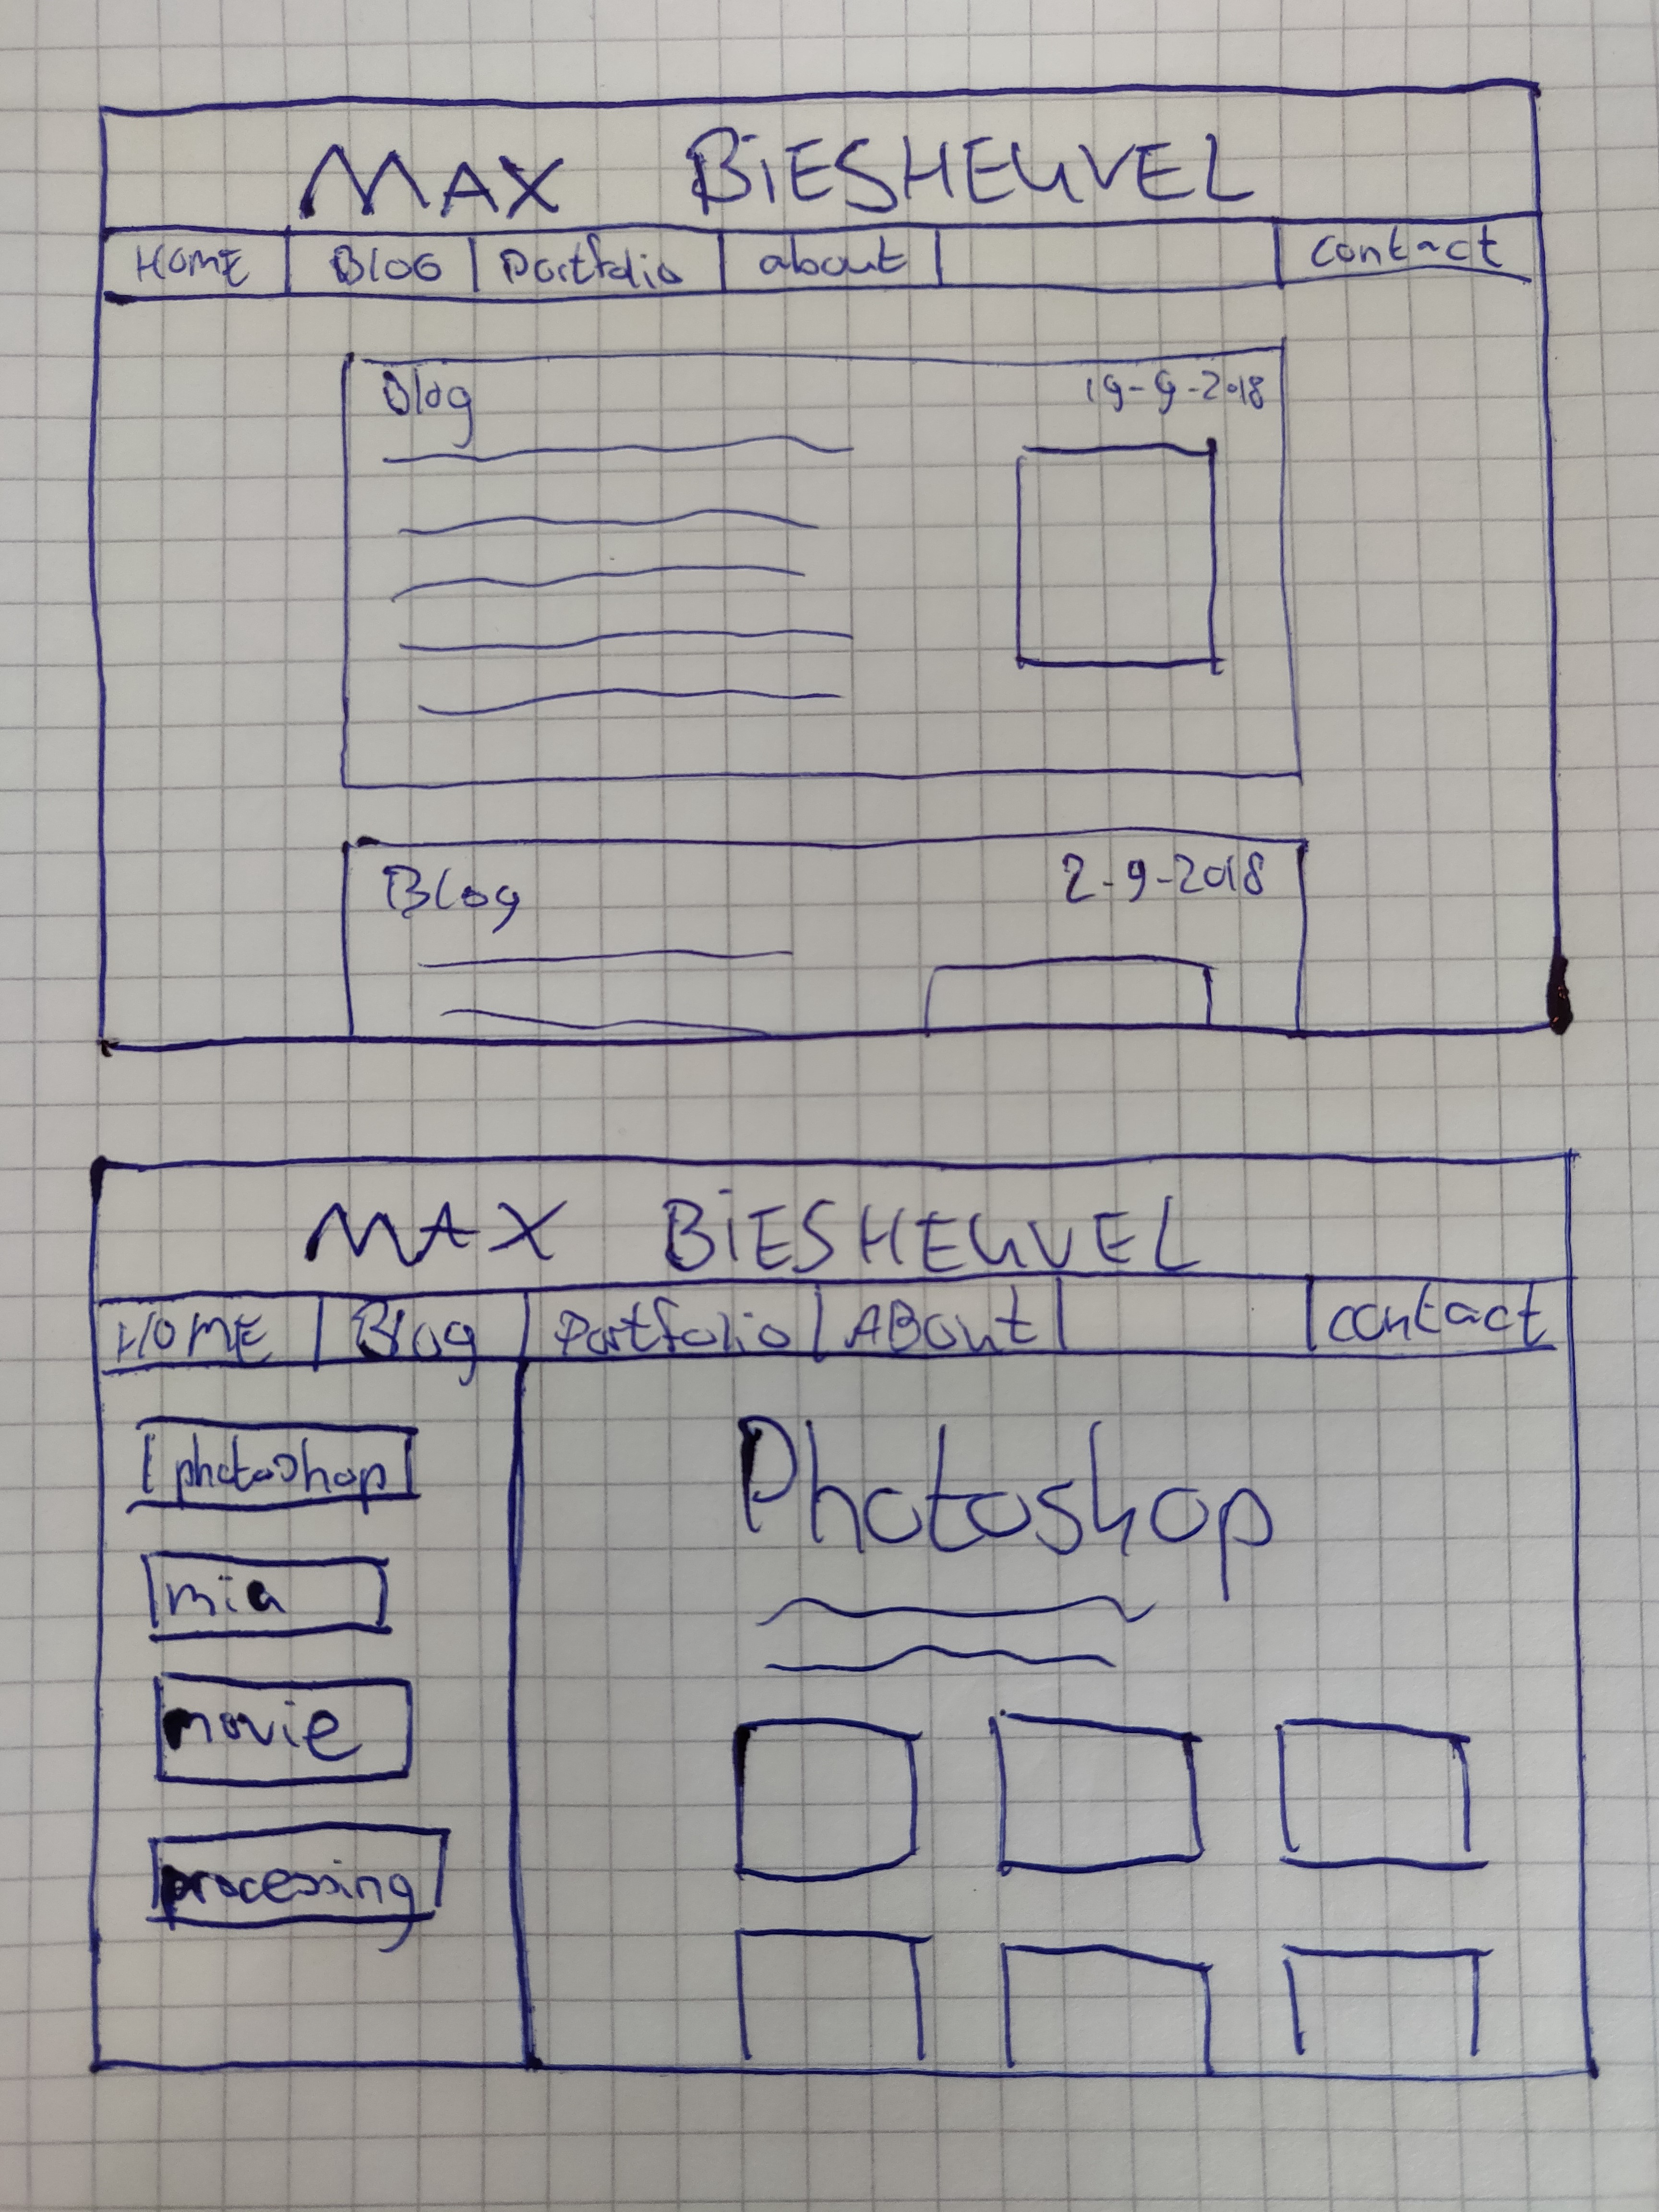 MAX BiESHEUVEL
HOME BLOG Portfolio about contact
Blog 19-9-2018
Blog 2-9-2018
MAX BiESHEUVEL
HOME Blog Portfolio ABOut contact
photoshop
Photoshop
mia
movie
processing